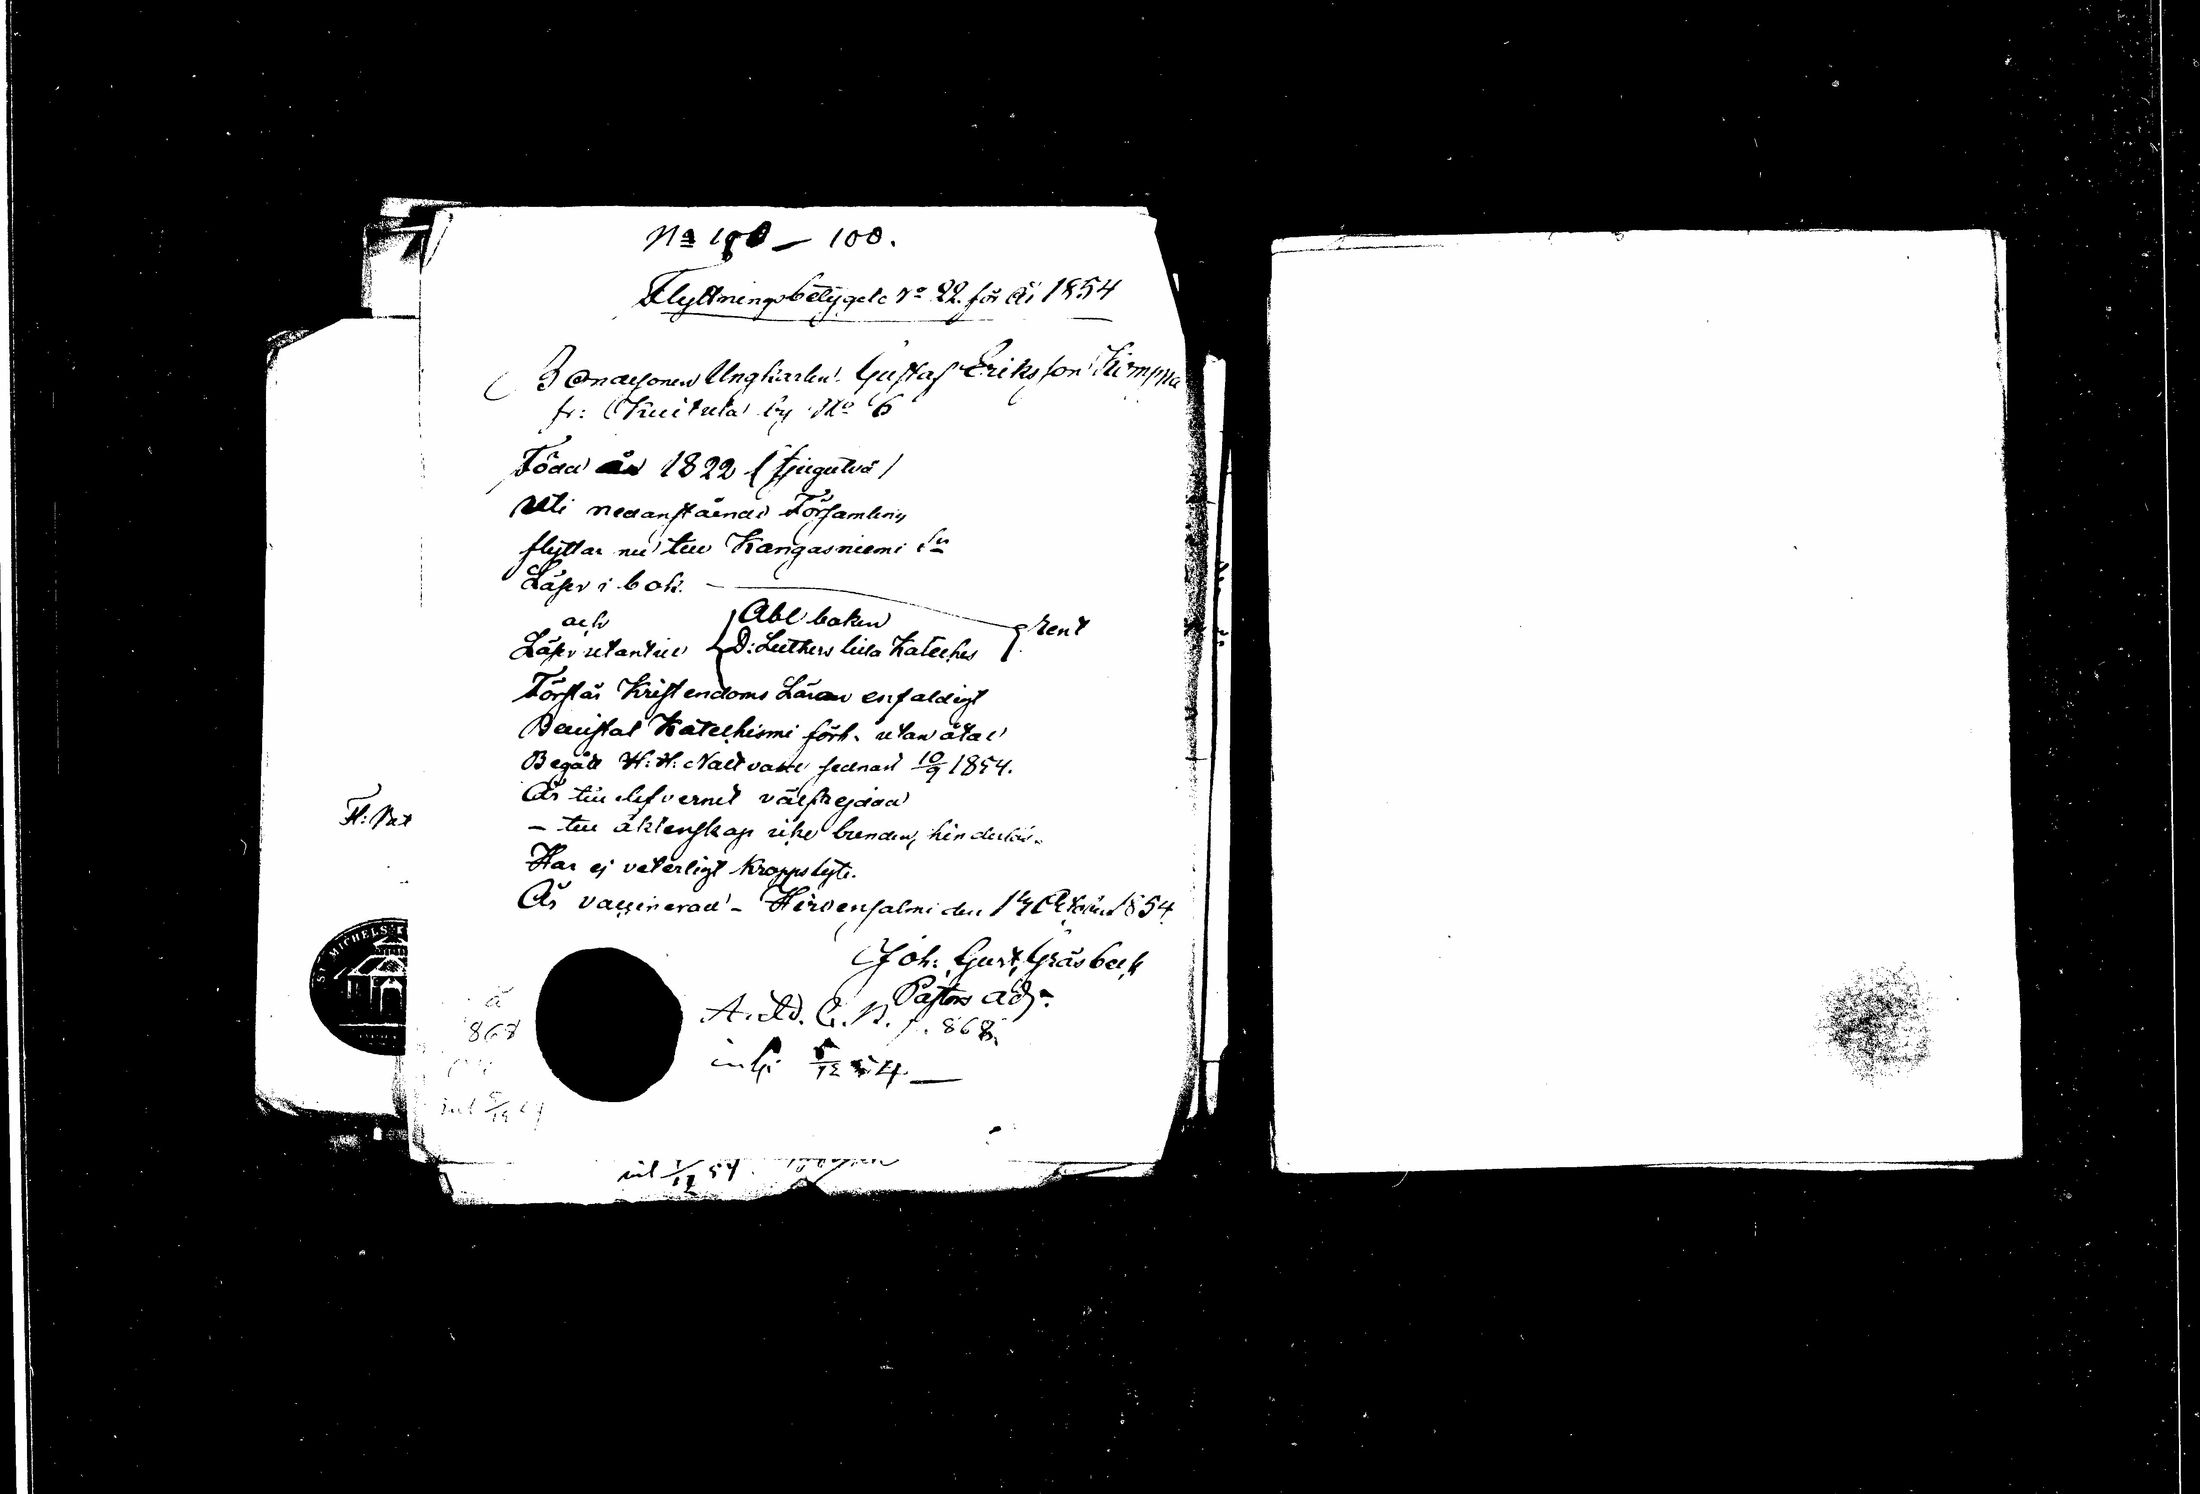 No 100 — 100.
Flyttningsbetyget No 22. för År 1854
Bondesonen Ungkarlen Gustaf Eriksson Kimppa
fr: Kuitula by No 6
Född år 1822 (tjugutvå)
uti nedanstående Församling
flyttar nu till Kangasniemi Sn
Läser i bok
och
Läser utantill
Abc boken
D: Luthers lilla Kateches
rent
Förstår Kristendoms Läran enfaldigt
Bevistat Katechismi förh. utan åtal
Begått H. H. Nattvard sednast 10/9 1854.
Är till lefvernet välfrejdad
— till äktenskap icke bunden, hinderlös.
Har ej veterligt kroppslyte.
Är vaccinerad — Hirvensalmi den 14 Oktober 1854
Joh: Gust. Gråsbeck
Pastors adj.
p. 868.
inl: 5/12 54. —
868
inl 5/12
inl 54
Fl: Bet
ST MICHELS